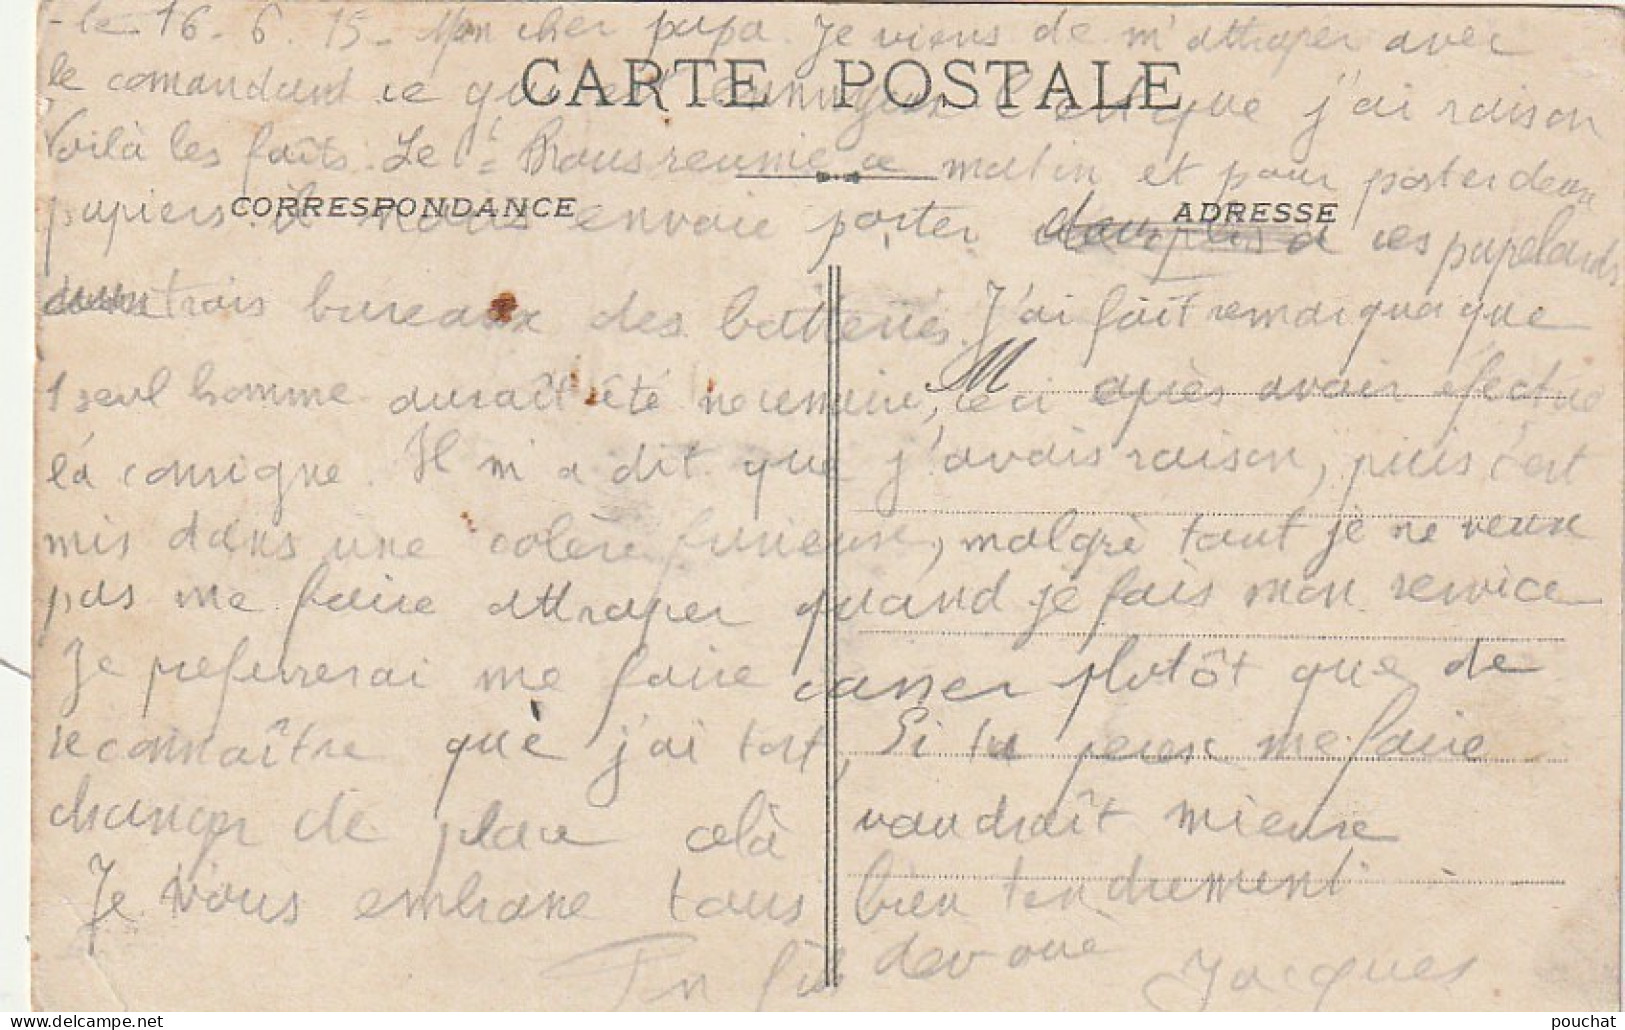 le 16-6.15- Mon cher papa. Je viens de m'attraper avec
le comandant ce qui est ennuyeux c'est que j'ai raison
CARTE POSTALE
Voilà les faits. Le nous reunie ce matin et pour porter deux
papiers il nous envoie porter ces papelards
CORRESPONDANCE
ADRESSE
trois bureaux des batteries. J'ai fait remarquer que
1 seul homme auraît été necessaire, ceci après avoir éfectué
M
la consigne. Il m'a dit que j'avais raison, puis c'est
mis dans une colère furieuse, malgrè tout je ne veux
pas me faire attraper quand je fais mon service
Je preferrerai me faire casser plutôt que de
reconnaître que j'ai tort, Si tu peux me faire
changer de place celà vaudraît mieux
Je vous embrasse tous bien tendrement
Ton fils devoué Jacques
pouchat